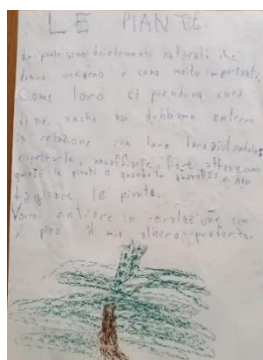 LE PIANTE
Le piante sono degli elementi naturali che
danno ossigeno e sono molto importanti.
Come loro si prendono cura
di noi, anche noi dobbiamo entrare
in relazione con loro
rispettarle, annaffiarle, fare attenzione
quando
tagliare le piante.
Vorrei entrare in relazione con
il pino il mio albero preferito